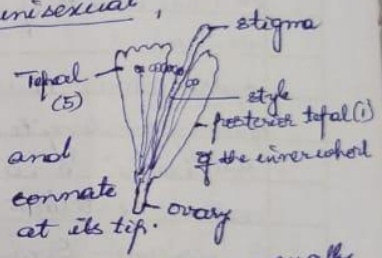 unisexual,
stigma
Tepal
(5)
style
posterior tepal (1)
of the inner whorl
and
connate
ovary
at its tip.
usually